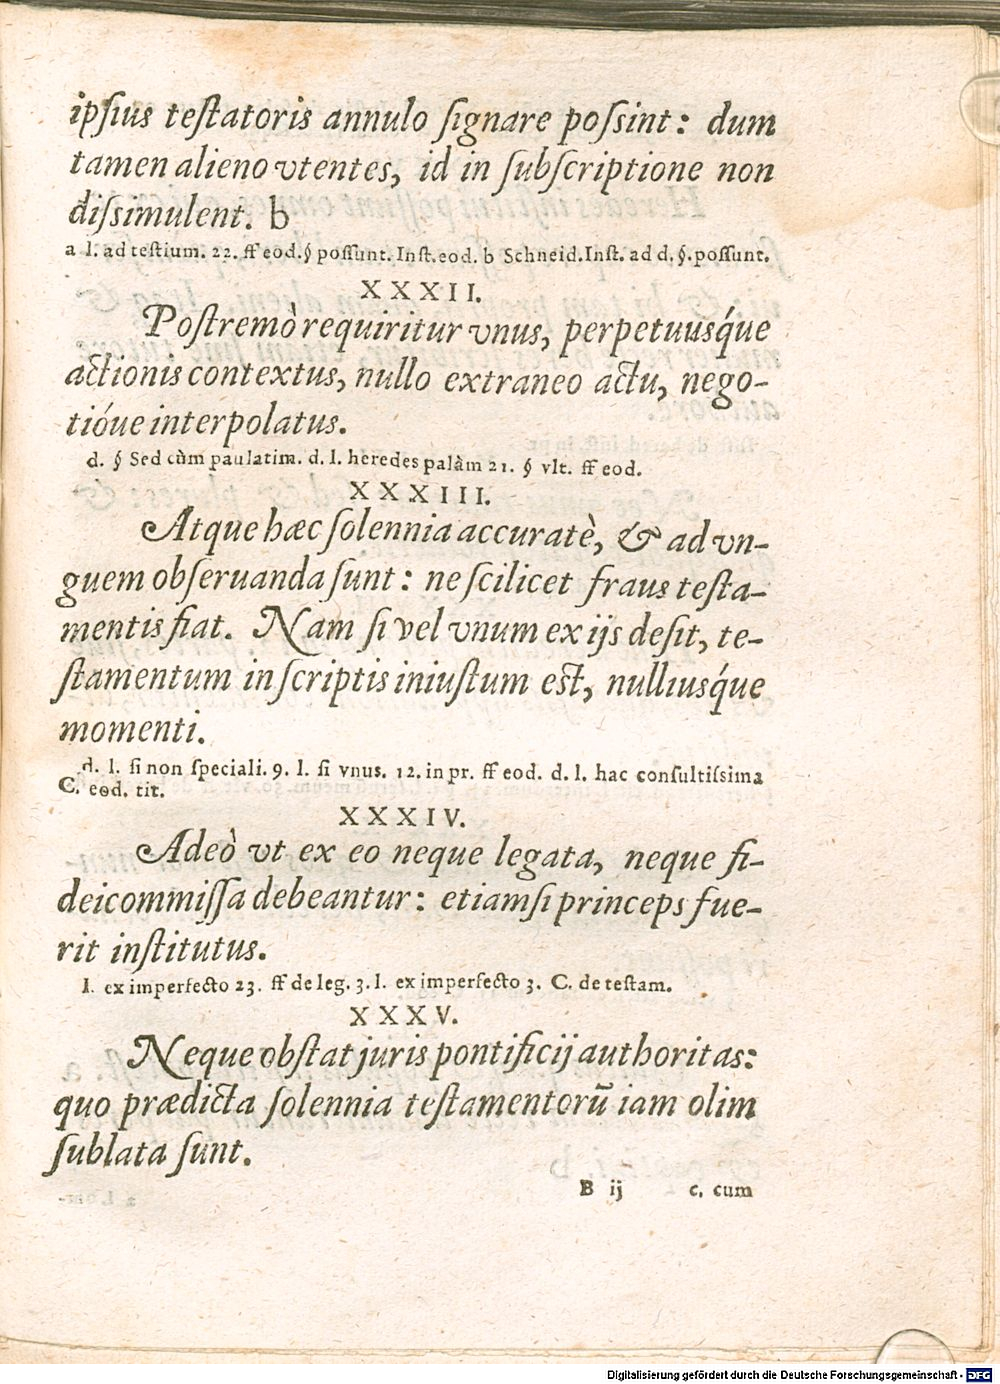 ipſius teſtatoris annulo ſignare poſsint: dum
tamen alieno vtentes, id in ſubſcriptione non
diſsimulent. b
a l. ad teſtium. 22. ff eod. § poſſunt. Inſt. eod. b Schneid. Inſt. ad d. §. poſſunt.
XXXII.
Poſtremò requiritur vnus, perpetuusq́ue
actionis contextus, nullo extraneo actu, nego-
tióue interpolatus.
d. § Sed cùm paulatim. d. l. heredes palàm 21. § vlt. ff eod.
XXXIII.
Atque hæc ſolennia accuratè, & ad vn-
guem obſeruanda ſunt: ne ſcilicet fraus teſta-
mentis fiat. Nam ſi vel vnum ex ijs deſit, te-
ſtamentum in ſcriptis iniuſtum eſt, nulliusq́ue
momenti.
d. l. ſi non ſpeciali. 9. l. ſi vnus. 12. in pr. ff eod. d. l. hac conſultiſsima
C. eod. tit.
XXXIV.
Adeò vt ex eo neque legata, neque fi-
deicommiſſa debeantur: etiamſi princeps fue-
rit inſtitutus.
l. ex imperfecto 23. ff de leg. 3. l. ex imperfecto 3. C. de teſtam.
XXXV.
Neque obſtat juris pontificij authoritas:
quo prædicta ſolennia teſtamentorũ iam olim
ſublata ſunt.
B ij c. cum
Digitalisierung gefördert durch die Deutsche Forschungsgemeinschaft - DFG